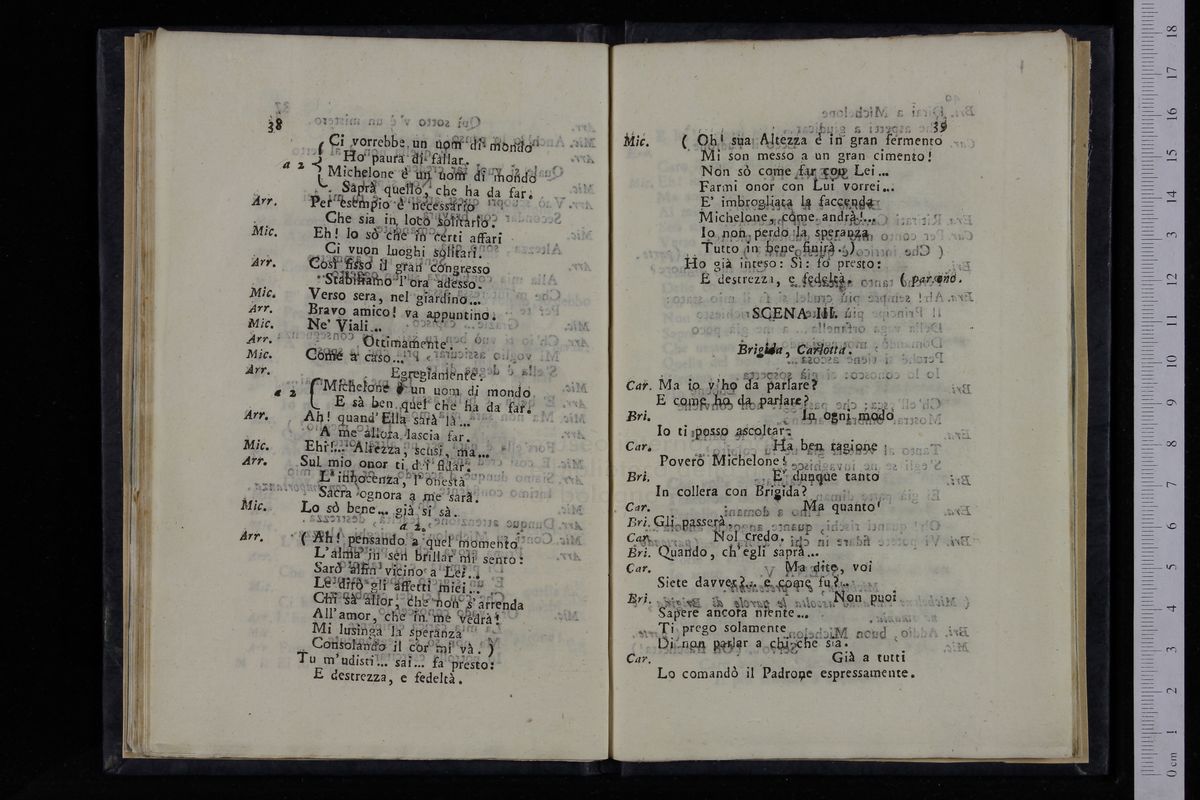 38
Ci vorrebbe un uom di mondo
Ho paura di fallar.
a 2
Michelone è un uom di mondo
Saprà quello, che ha da far.
Arr. Per esempio è necessario
Che sia in loco solitario.
Mic. Eh! lo sò che in certi affari
Ci vuon luoghi solitari.
Arr. Così fisso il gran congresso
Stabiliamo l'ora adesso.
Mic. Verso sera, nel giardino...
Arr. Bravo amico! va appuntino.
Mic. Ne' Viali...
Arr. Ottimamente.
Mic. Come a caso...
Arr. Egregiamente.
a 2 Michelone è un uom di mondo
E sà ben quel che ha da far.
Arr. Ah! quand' Ella sarà là...
A me allora lascia far.
Mic. Eh!... Altezza, scusi, ma...
Arr. Sul mio onor ti dei fidar.
L'innocenza, l'onestà
Sacra ognora a me sarà.
Mic. Lo sò bene... già si sà.
a 2.
Arr. ( Ah! pensando a quel momento
L'alma in sen brillar mi sento:
Sarò alfin vicino a Lei...
Le dirò gli affetti miei...
Chi sà allor, che non s'arrenda
All'amor, che in me vedrà!
Mi lusinga la speranza
Consolando il cor mi và. )
Tu m'udisti... sai... fa presto:
E destrezza, e fedeltà.
39
Mic. ( Oh! sua Altezza è in gran fermento
Mi son messo a un gran cimento!
Non sò come far con Lei...
Farmi onor con Lui vorrei...
E' imbrogliata la faccenda
Michelone, come andrà!...
Io non perdo la speranza
Tutto in bene finirà. )
Ho già inteso: Sì: fo presto:
E destrezza, e fedeltà. ( partono.
SCENA III.
Brigida, Carlotta.
Car. Ma io v'ho da parlare?
E come ho da parlare?
Bri. In ogni modo
Io ti posso ascoltar.
Car. Ha ben ragione
Povero Michelone!
Bri. E' dunque tanto
In collera con Brigida?
Car. Ma quanto!
Bri. Gli passerà.
Car. Nol credo.
Bri. Quando, ch'egli saprà...
Car. Ma dite, voi
Siete davver?... e come fu?...
Bri. Non puoi
Sapere ancora niente...
Ti prego solamente
Di non parlar a chi che sia.
Car. Già a tutti
Lo comandò il Padrone espressamente.